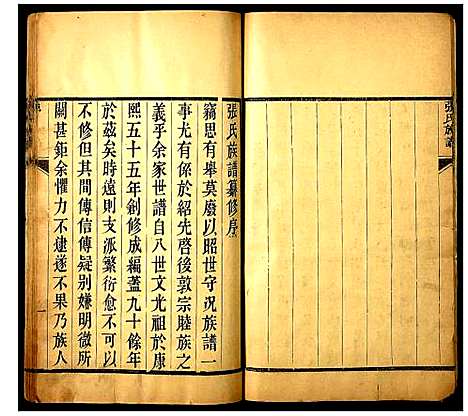 張氏族譜
張氏族譜纂修序
竊思有舉莫廢以昭世守況族譜一
事尤有係於紹先啓後敦宗睦族之
義乎余家世譜自八世文光祖於康
熙五十五年創修成編蓋九十餘年
於茲矣時遠則支派繁衍愈不可以
不修但其間傳信傳疑別嫌明微所
關甚鉅余懼力不逮遂不果乃族人
一